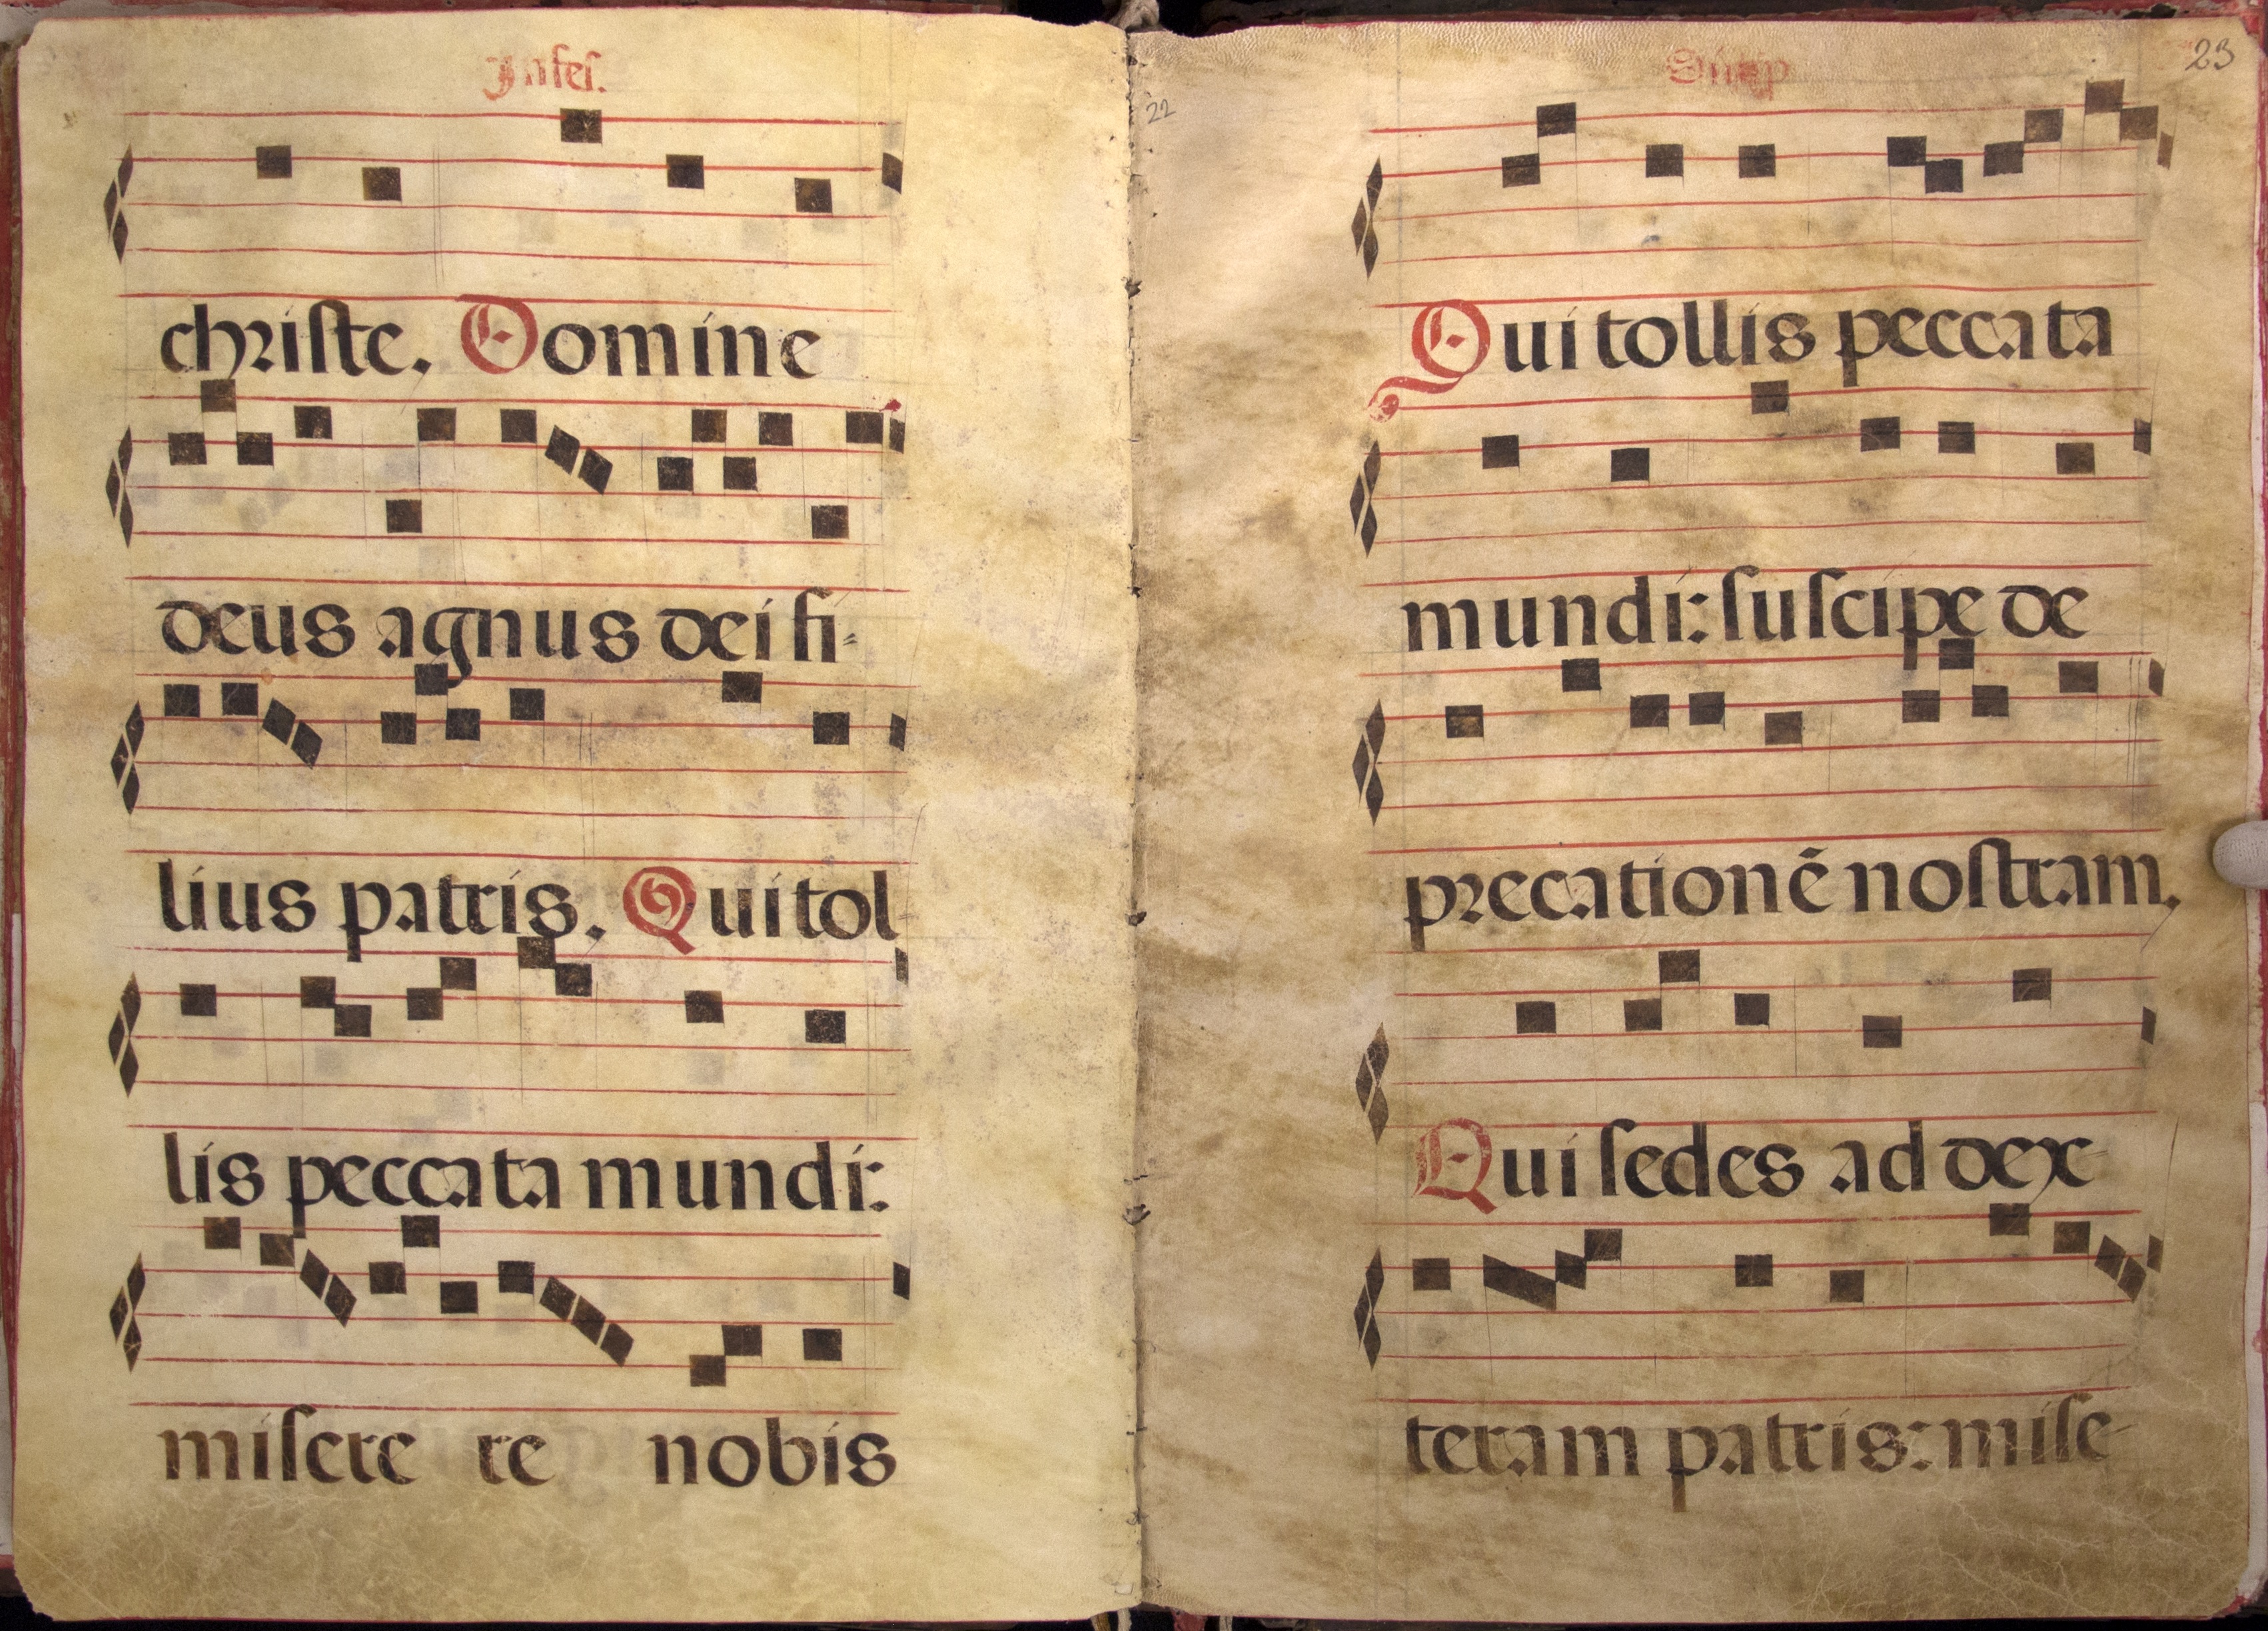 In fes.
chriſte. Domine
deus agnus dei fi-
lius patris. Qui tol
lis peccata mundi:
miſere re nobis
22
23
Qui tollis peccata
mundi: ſuſcipe de
precationē noſtram.
Qui ſedes ad dex-
teram patris: miſe-